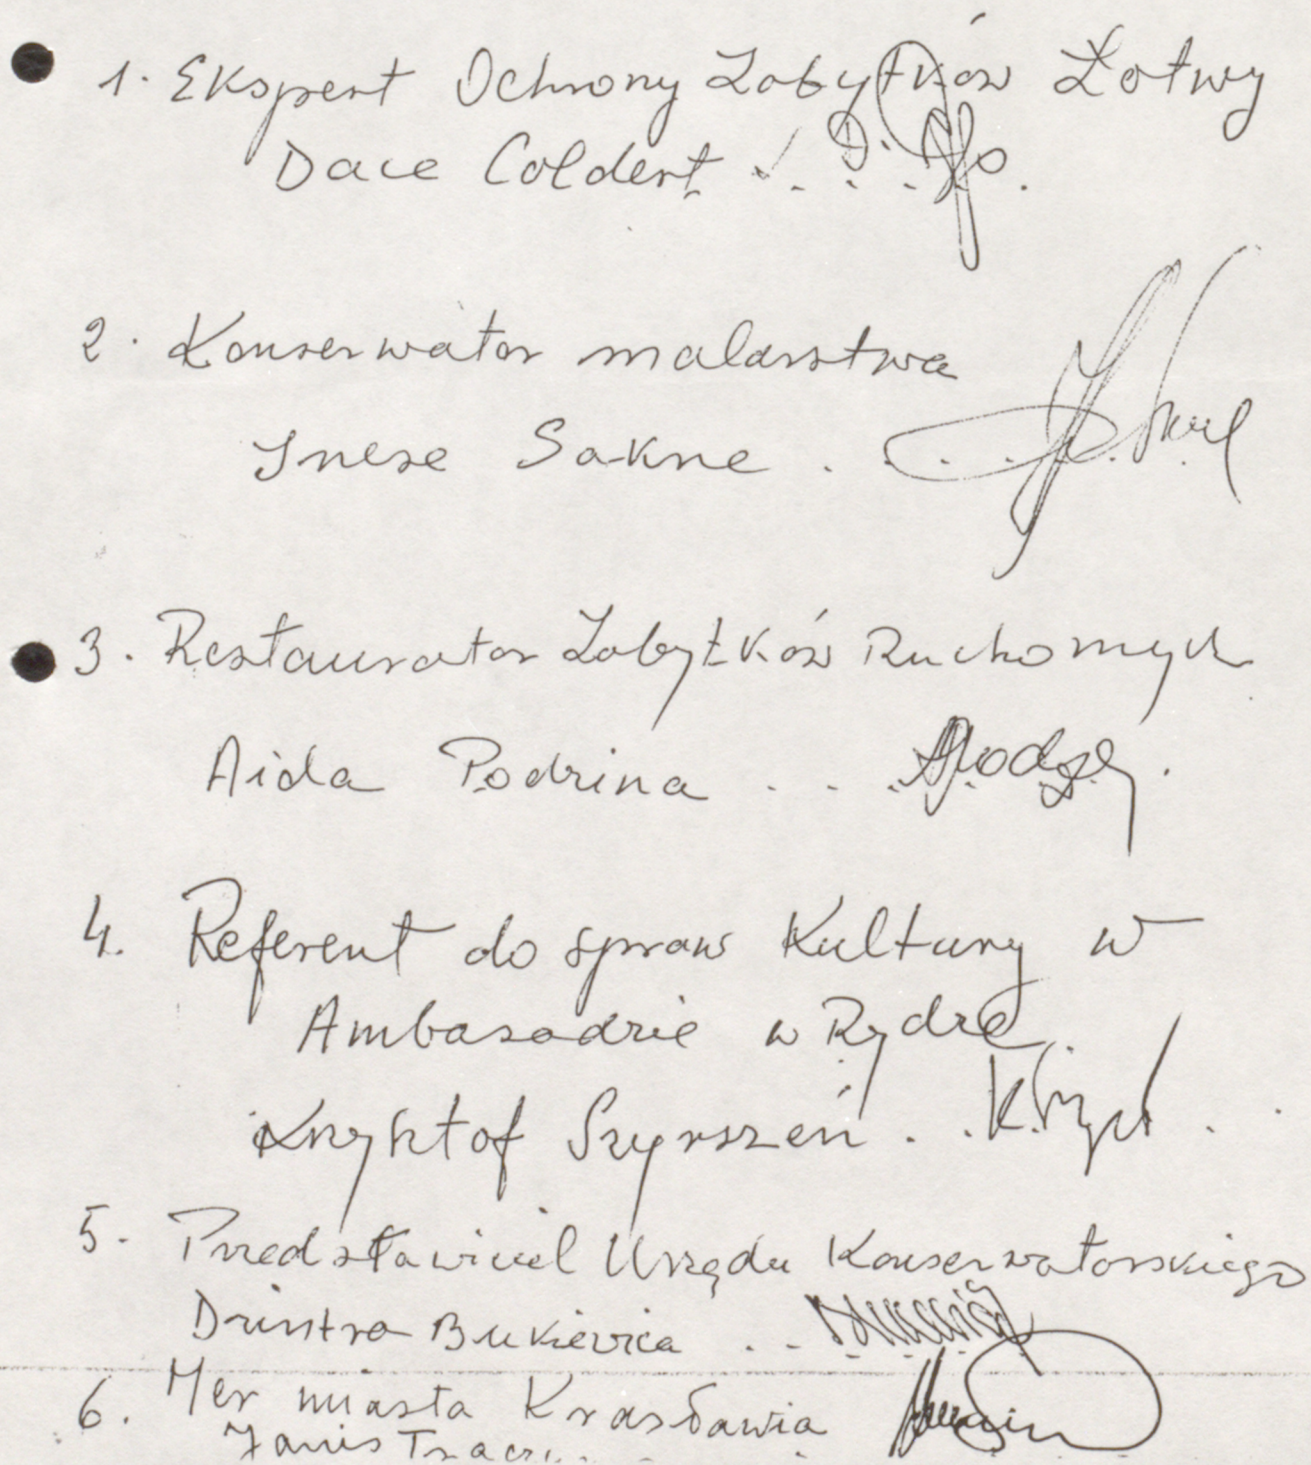 1. Ekspert Ochrony Zabytków Łotwy
Dace Coldert
2. Konserwator malarstwa
Inese Sakne
3. Restaurator Zabytków Ruchomych
Aida Podrina
4. Referent do spraw Kultury w
Ambasadzie w Rydze
Krzyktof Szyrszeń
5. Przedstawiciel Urzędu Konserwatorskiego
Dzintra Bukievica
6. Mer miasta Krasławia
Janis